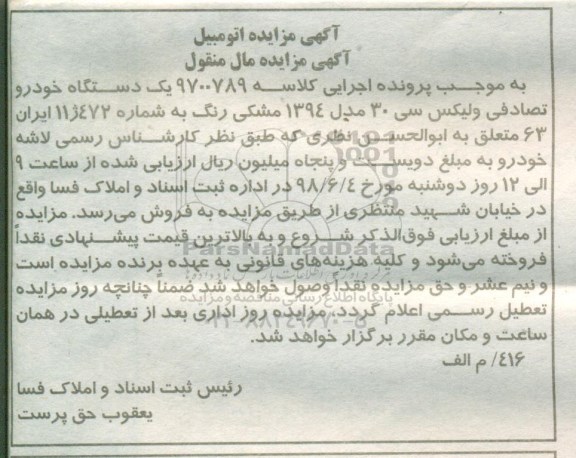 آگهی مزایده اتومبیل
آگهی مزایده مال منقول
به موجب پرونده اجرایی کلاسه ۹۷۰۰۷۸۹ یک دستگاه خودرو
تصادفی ولیکس سی ۳۰ مدل ۱۳۹٤ مشکی رنگ به شماره ٤۷۲ژ۱۱ ایران
۶۳ متعلق به ابوالحسین نظری که طبق نظر کارشناس رسمی لاشه
خودرو به مبلغ دویست و پنجاه میلیون ریال ارزیابی شده از ساعت ۹
الی ۱۲ روز دوشنبه مورخ ۹۸/۶/٤ در اداره ثبت اسناد و املاک فسا واقع
در خیابان شهید منتظری از طریق مزایده به فروش می‌رسد. مزایده
از مبلغ ارزیابی فوق‌الذکر شروع و به بالاترین قیمت پیشنهادی نقداً
فروخته می‌شود و کلیه هزینه‌های قانونی به عهده برنده مزایده است
و نیم عشر و حق مزایده نقداً وصول خواهد شد ضمناً چنانچه روز مزایده
تعطیل رسمی اعلام گردد، مزایده روز اداری بعد از تعطیلی در همان
ساعت و مکان مقرر برگزار خواهد شد.
٤۱۶/ م الف
رئیس ثبت اسناد و املاک فسا
یعقوب حق پرست
ParsNamadData
پایگاه اطلاع رسانی مناقصه و مزایده